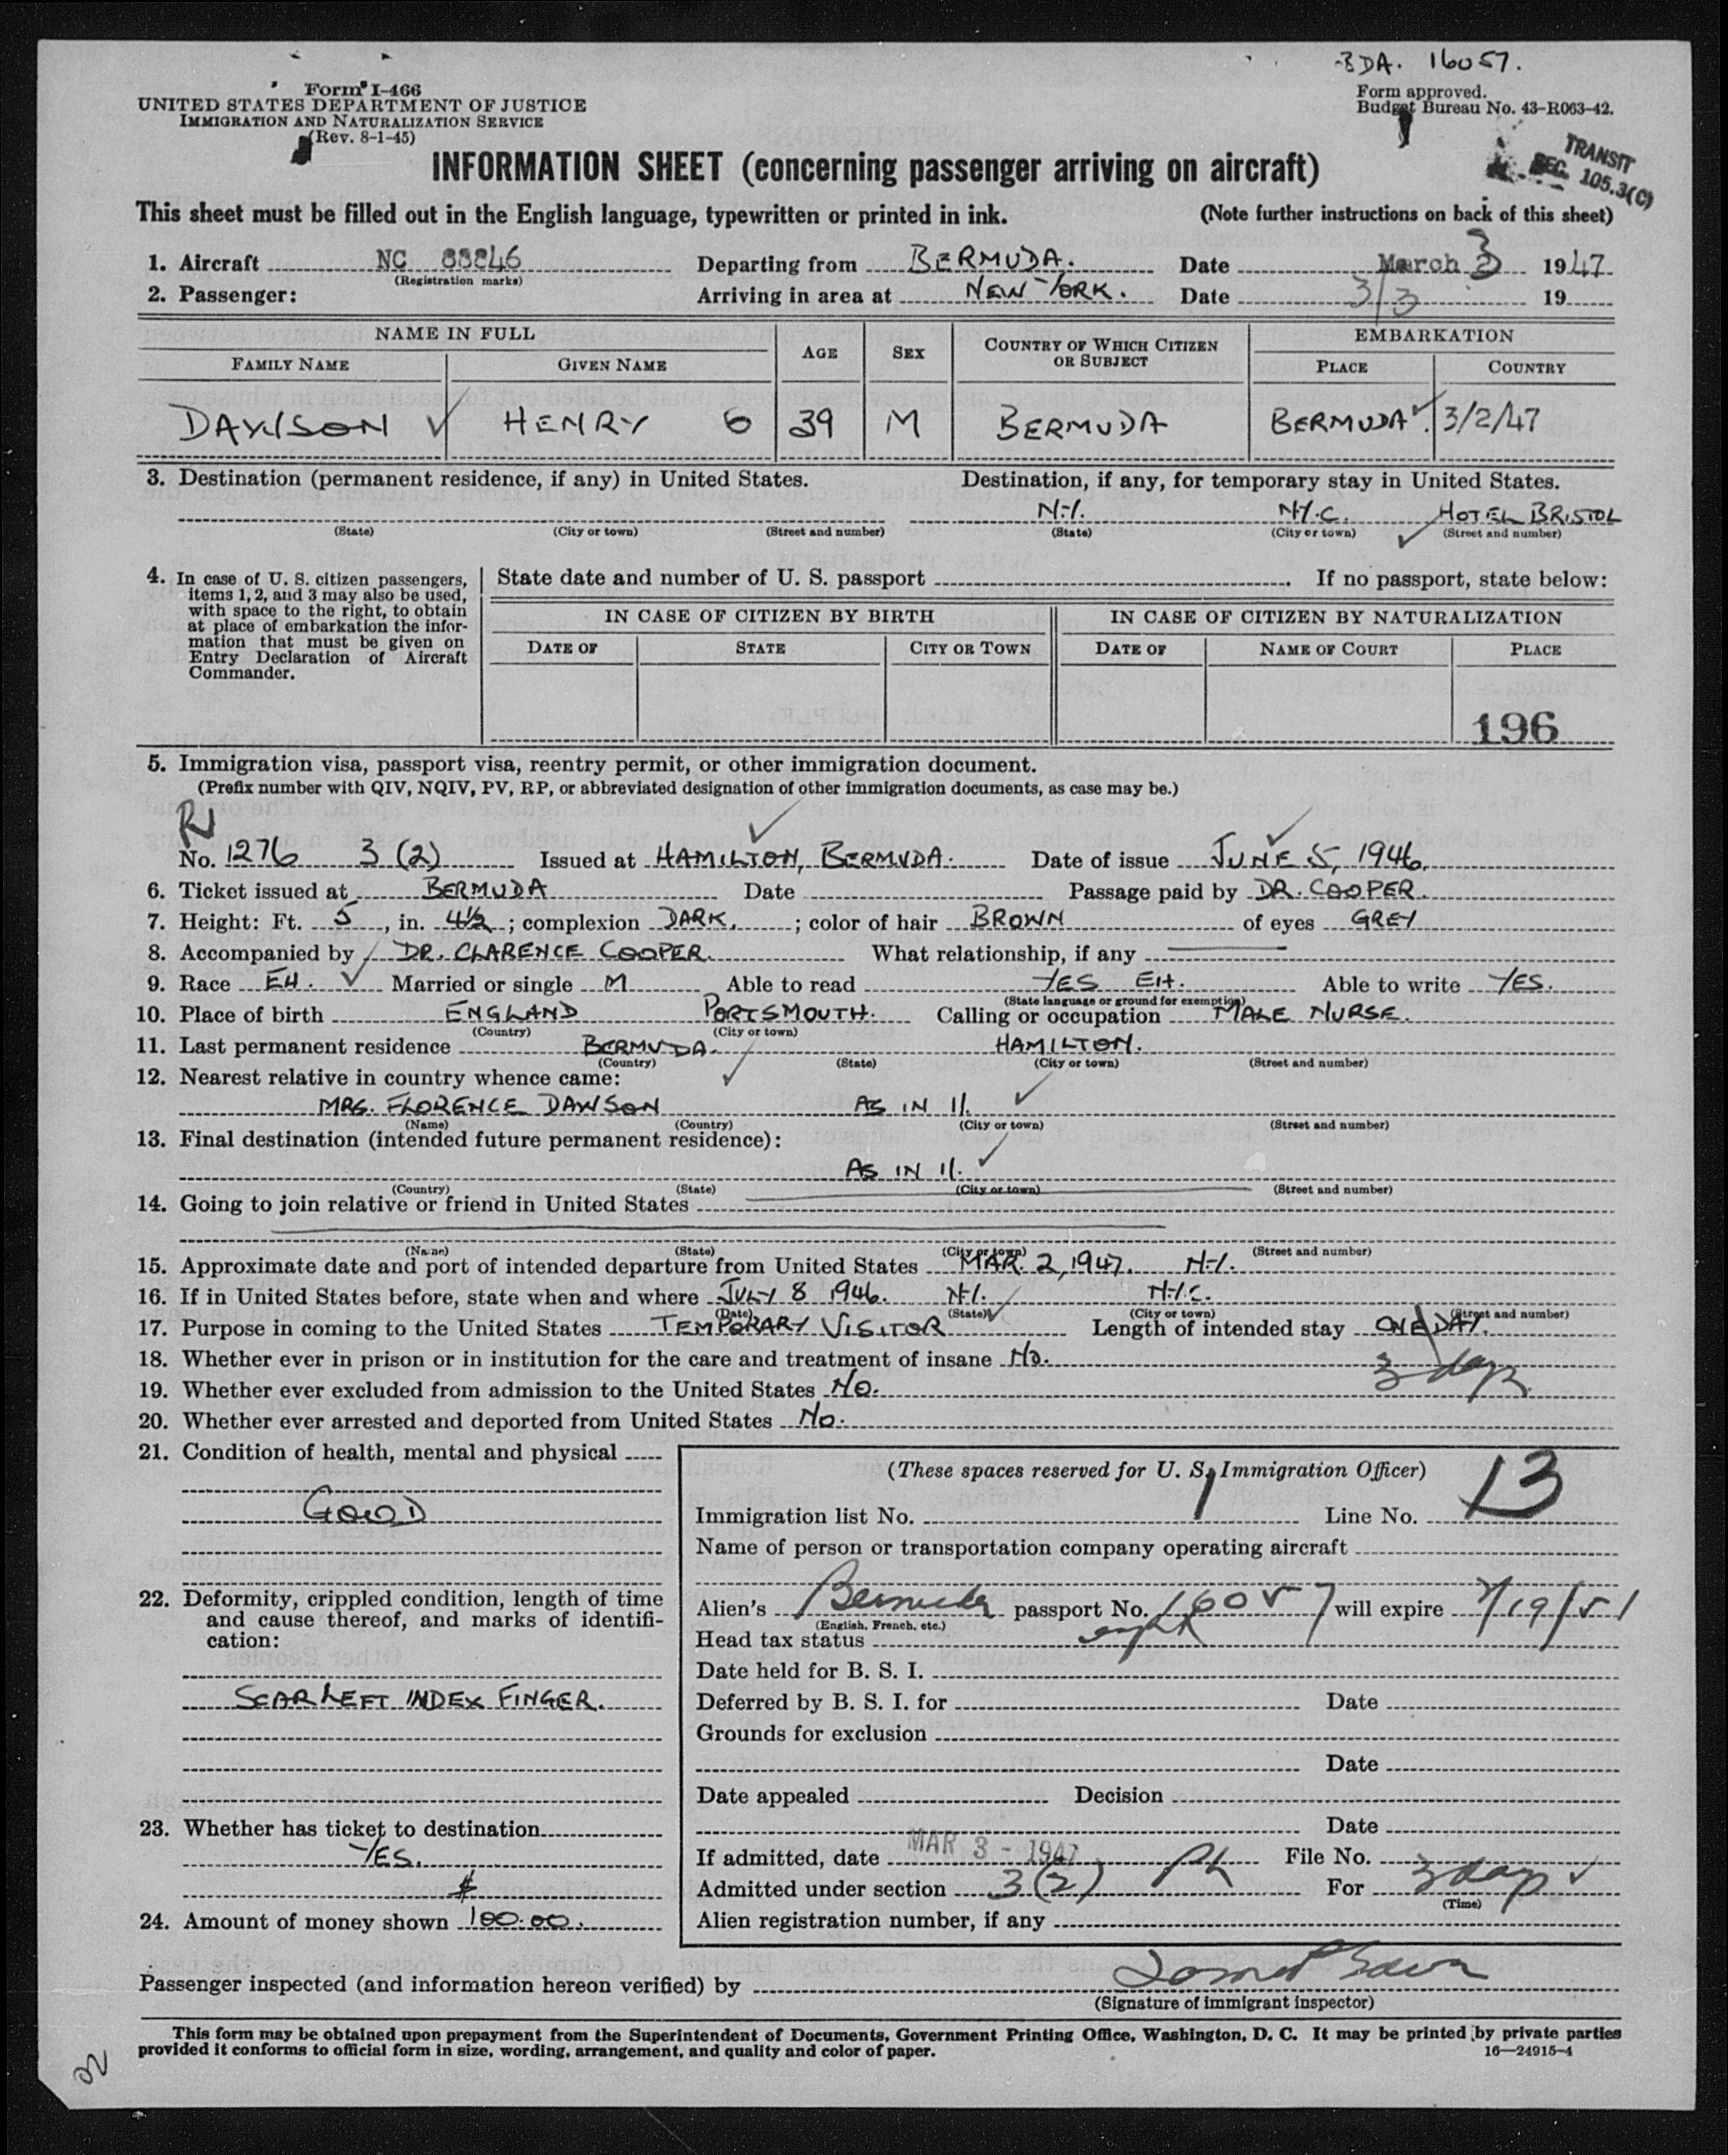 BDA. 16057.
Form I-466
UNITED STATES DEPARTMENT OF JUSTICE
IMMIGRATION AND NATURALIZATION SERVICE
(Rev. 8-1-45)
Form approved.
Budget Bureau No. 43-R063-42.
TRANSIT
SEC. 105.3(C)
INFORMATION SHEET (concerning passenger arriving on aircraft)
This sheet must be filled out in the English language, typewritten or printed in ink. (Note further instructions on back of this sheet)
1. Aircraft NC 88846 Departing from BERMUDA. Date March 3 1947
(Registration marks)
2. Passenger: Arriving in area at NEW YORK. Date 3/3 19
NAME IN FULL AGE SEX COUNTRY OF WHICH CITIZEN OR SUBJECT EMBARKATION
FAMILY NAME GIVEN NAME PLACE COUNTRY
DAWSON HENRY G 39 M BERMUDA BERMUDA. 3/2/47
3. Destination (permanent residence, if any) in United States. Destination, if any, for temporary stay in United States.
N.Y. N.Y.C. HOTEL BRISTOL
(State) (City or town) (Street and number) (State) (City or town) (Street and number)
4. In case of U. S. citizen passengers, items 1, 2, and 3 may also be used, with space to the right, to obtain at place of embarkation the information that must be given on Entry Declaration of Aircraft Commander.
State date and number of U. S. passport . If no passport, state below:
IN CASE OF CITIZEN BY BIRTH IN CASE OF CITIZEN BY NATURALIZATION
DATE OF STATE CITY OR TOWN DATE OF NAME OF COURT PLACE
196
5. Immigration visa, passport visa, reentry permit, or other immigration document.
(Prefix number with QIV, NQIV, PV, RP, or abbreviated designation of other immigration documents, as case may be.)
No. 1276 3 (2) Issued at HAMILTON, BERMUDA. Date of issue JUNE 5, 1946.
6. Ticket issued at BERMUDA Date Passage paid by DR. COOPER.
7. Height: Ft. 5, in. 4½; complexion DARK.; color of hair BROWN of eyes GREY
8. Accompanied by DR. CLARENCE COOPER. What relationship, if any
9. Race EH. Married or single M Able to read YES EH. Able to write YES.
(State language or ground for exemption)
10. Place of birth ENGLAND PORTSMOUTH. Calling or occupation MALE NURSE.
(Country) (City or town)
11. Last permanent residence BERMUDA. HAMILTON.
(Country) (State) (City or town) (Street and number)
12. Nearest relative in country whence came:
MRS. FLORENCE DAWSON AS IN 11.
(Name) (Country) (City or town) (Street and number)
13. Final destination (intended future permanent residence):
AS IN 11.
(Country) (State) (City or town) (Street and number)
14. Going to join relative or friend in United States
(Name) (State) (City or town) (Street and number)
15. Approximate date and port of intended departure from United States MAR. 2, 1947. N.Y.
16. If in United States before, state when and where JULY 8 1946. N.Y. N.Y.C.
(Date) (State) (City or town) (Street and number)
17. Purpose in coming to the United States TEMPORARY VISITOR Length of intended stay ONE DAY.
3 days
18. Whether ever in prison or in institution for the care and treatment of insane NO.
19. Whether ever excluded from admission to the United States NO.
20. Whether ever arrested and deported from United States NO.
21. Condition of health, mental and physical
GOOD
22. Deformity, crippled condition, length of time and cause thereof, and marks of identification:
SCAR LEFT INDEX FINGER.
23. Whether has ticket to destination
YES.
$
24. Amount of money shown 100.00.
(These spaces reserved for U. S. Immigration Officer)
Immigration list No. 1 Line No. 13
Name of person or transportation company operating aircraft
Alien's Bermuda passport No. 16057 will expire 7/19/51
(English, French, etc.)
Head tax status
Date held for B. S. I.
Deferred by B. S. I. for Date
Grounds for exclusion
Date
Date appealed Decision
Date
If admitted, date MAR 3 - 1947 File No.
Admitted under section 3(2) For 3 days
(Time)
Alien registration number, if any
Passenger inspected (and information hereon verified) by
(Signature of immigrant inspector)
This form may be obtained upon prepayment from the Superintendent of Documents, Government Printing Office, Washington, D. C. It may be printed by private parties
provided it conforms to official form in size, wording, arrangement, and quality and color of paper. 16—24915-4